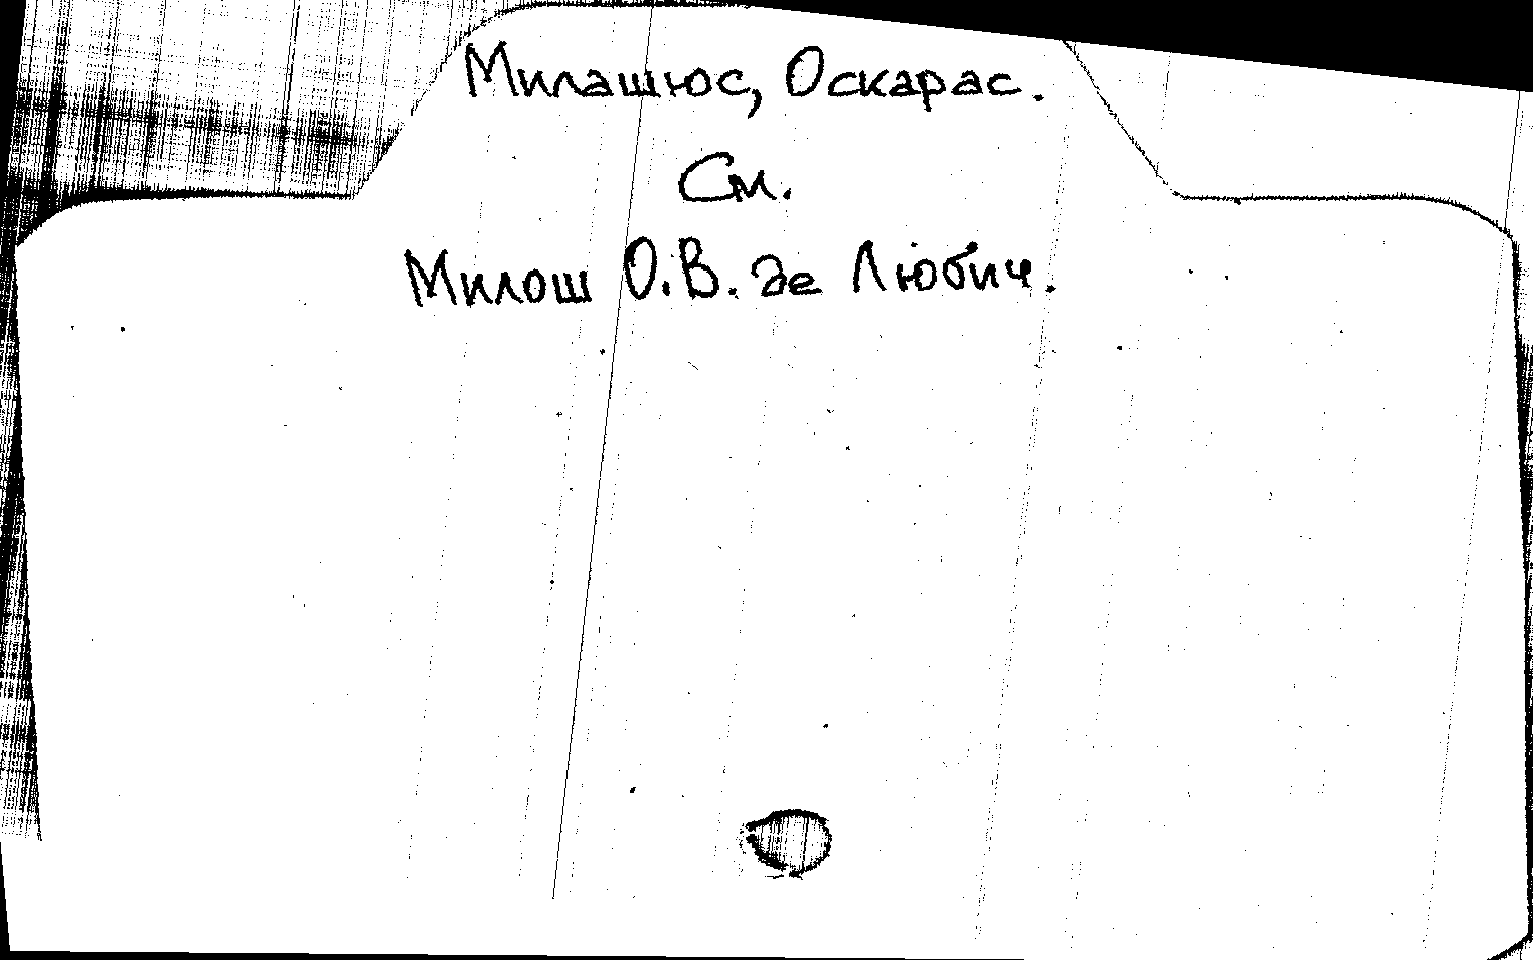 Милашюс, Оскарас.
См.
Милош О.В. де Любич.